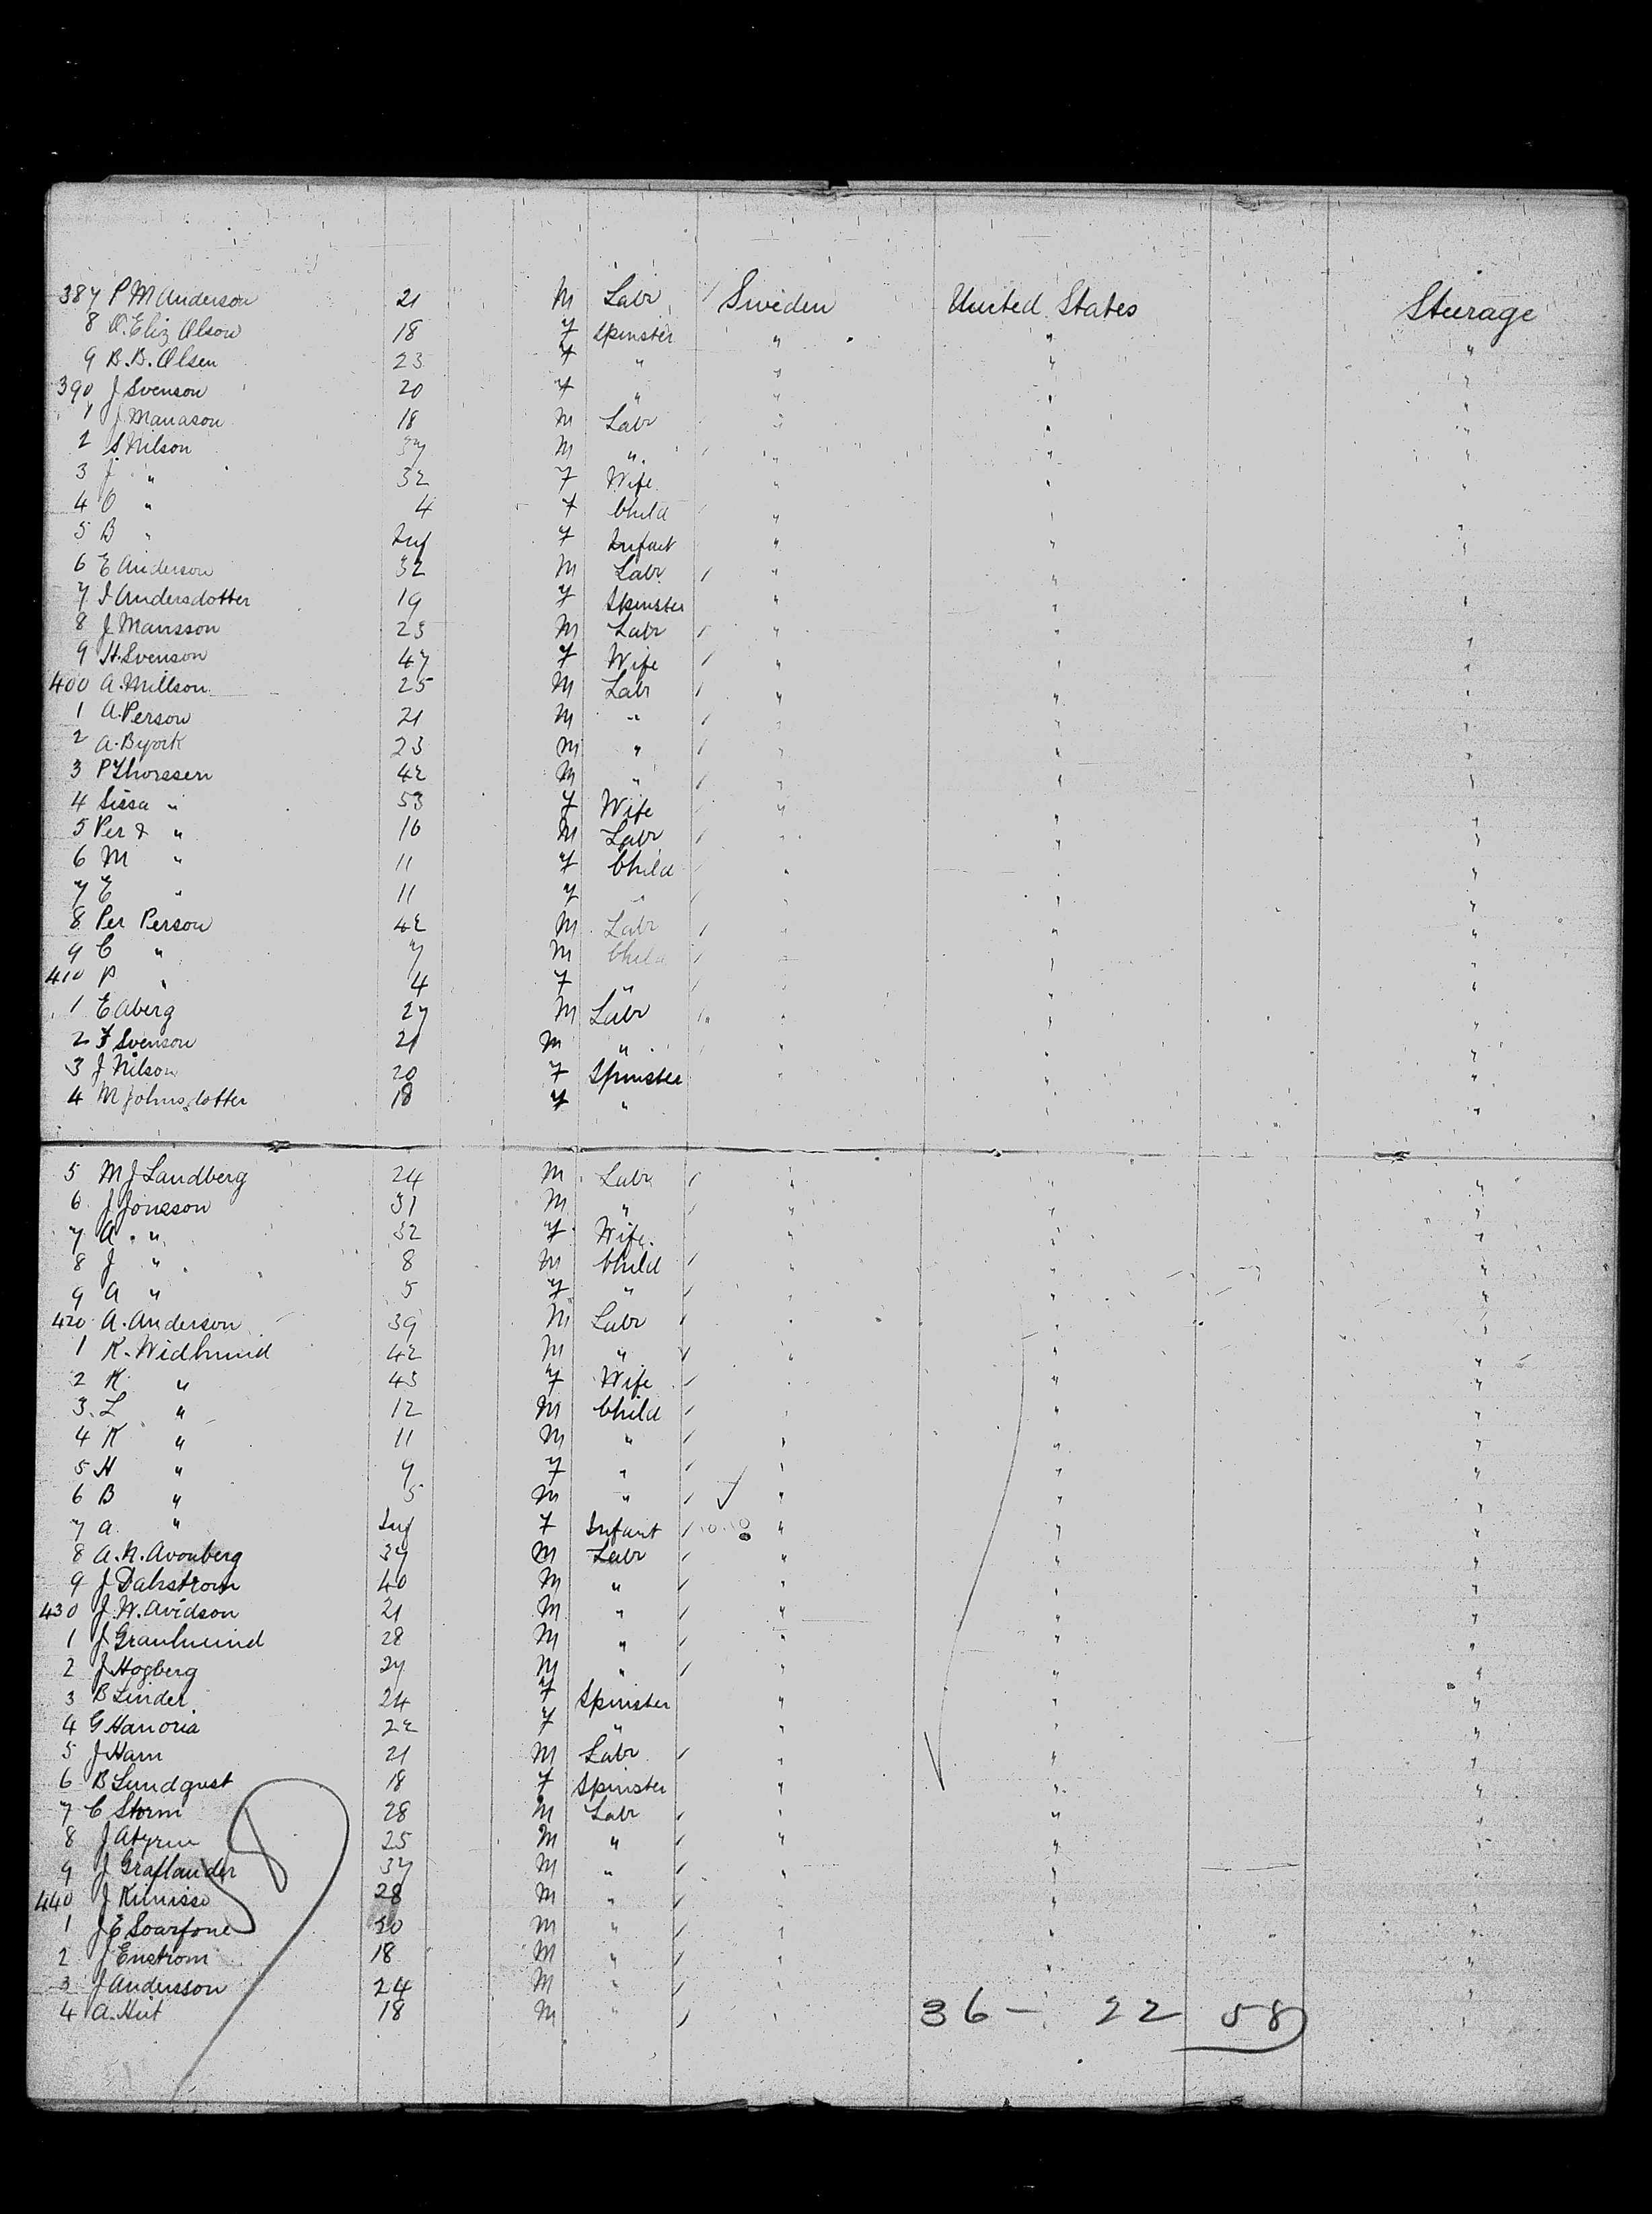 387 P M Anderson 21 M Labr Sweden United States Steerage
8 O. Eliz Olson 18 F Spinster " " "
9 B. B. Olsen 23 F " " " "
390 J Svenson 20 F " " " "
1 J Manason 18 M Labr " " "
2 S Nilson 37 M " " " "
3 J " 32 F Wife " " "
4 O " 4 F Child " " "
5 B " Inf F Infant " " "
6 E Anderson 32 M Labr " " "
7 I Andersdotter 19 F Spinster " " "
8 J Mansson 23 M Labr " " "
9 H. Svenson 47 F Wife " " "
400 A. Millson 25 M Labr " " "
1 A. Person 21 M " " " "
2 A. Byork 23 M " " " "
3 P Thorssen 42 M " " " "
4 Sissa " 53 F Wife " " "
5 Per & " 16 M Labr " " "
6 M " 11 F Child " " "
7 E " 11 F " " " "
8 Per Person 42 M Labr " " "
9 C " 7 M Child " " "
410 P " 4 F " " " "
1 E Aberg 27 M Labr " " "
2 F Svenson 21 M " " " "
3 J Nilson 20 F Spinster " " "
4 M Johnsdotter 18 F " " " "
5 M J Landberg 24 M Labr " " "
6 J Jonsson 31 M " " " "
7 A " 32 F Wife " " "
8 J " 8 M Child " " "
9 A " 5 F " " " "
420 A. Anderson 39 M Labr " " "
1 K. Widlund 42 M " " " "
2 K " 43 F Wife " " "
3 L " 12 M Child " " "
4 K " 11 M " " " "
5 H " 9 F " " " "
6 B " 5 M " " " "
7 A. " Inf F Infant " " "
8 A. N. Avonberg 37 M Labr " " "
9 J Dahstrom 40 M " " " "
430 J. W. Avidson 21 M " " " "
1 J Granlund 28 M " " " "
2 J Hogberg 27 M " " " "
3 B Linder 24 F Spinster " " "
4 G Hanoria 22 F " " " "
5 J Ham 21 M Labr " " "
6 B Lundqust 18 F Spinster " " "
7 C Storm 28 M Labr " " "
8 J 25 M " " " "
9 J Graflander 37 M " " " "
440 J 28 M " " " "
1 J E 30 M " " " "
2 J Enstrom 18 M " " " "
3 J Andersson 24 M " " " "
4 A. 18 M " " "
36 - 22 58